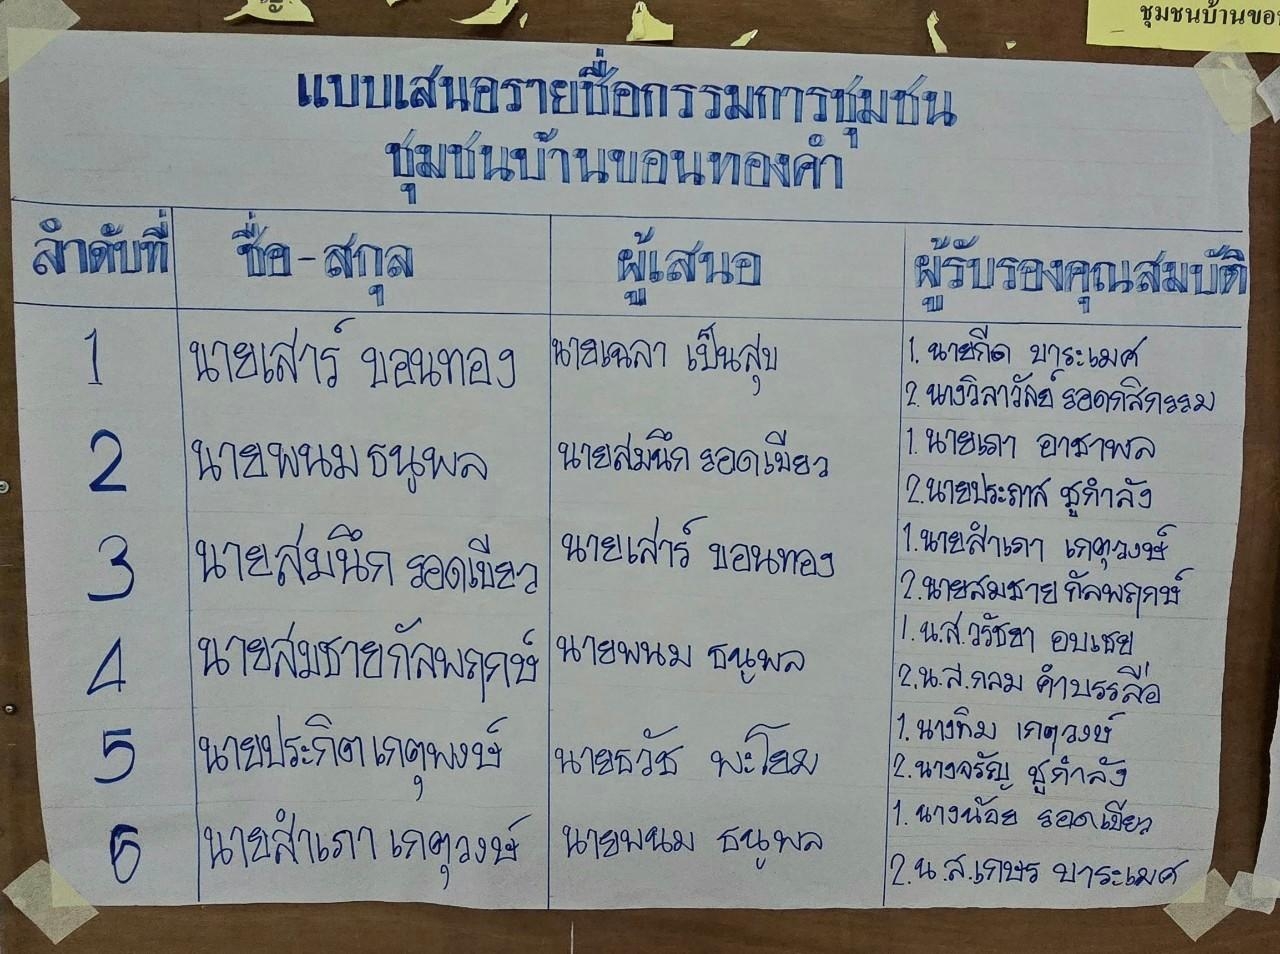 ชุมชนบ้านขอน
แบบเสนอรายชื่อกรรมการชุมชน
ชุมชนบ้านขอนทองคำ
ลำดับที่ ชื่อ-สกุล ผู้เสนอ ผู้รับรองคุณสมบัติ
1 นายเสาร์ ขอนทอง นายเฉลา เป็นสุข 1. นายกีด บาระเมศ
2. นางวิลาวัลย์ รอดกสิกรรม
2 นายพนม ธนูพล นายสมนึก รอดเขียว 1. นายเภา อาชาพล
2. นายประภาส ชูกำลัง
3 นายสมนึก รอดเขียว นายเสาร์ ขอนทอง 1. นายสำเภา เกตุวงษ์
2. นายสมชาย กัลพฤกษ์
4 นายสมชาย กัลพฤกษ์ นายพนม ธนูพล 1. น.ส.วรัชยา อบเชย
2. น.ส.กลม คำบรรลือ
5 นายประกิต เกตุพงษ์ นายธวัช พะโยม 1. นางทิม เกตุวงษ์
2. นางจรัญ ชูกำลัง
6 นายสำเภา เกตุวงษ์ นายพนม ธนูพล 1. นางน้อย รอดเขียว
2. น.ส.เกษร บาระเมศ